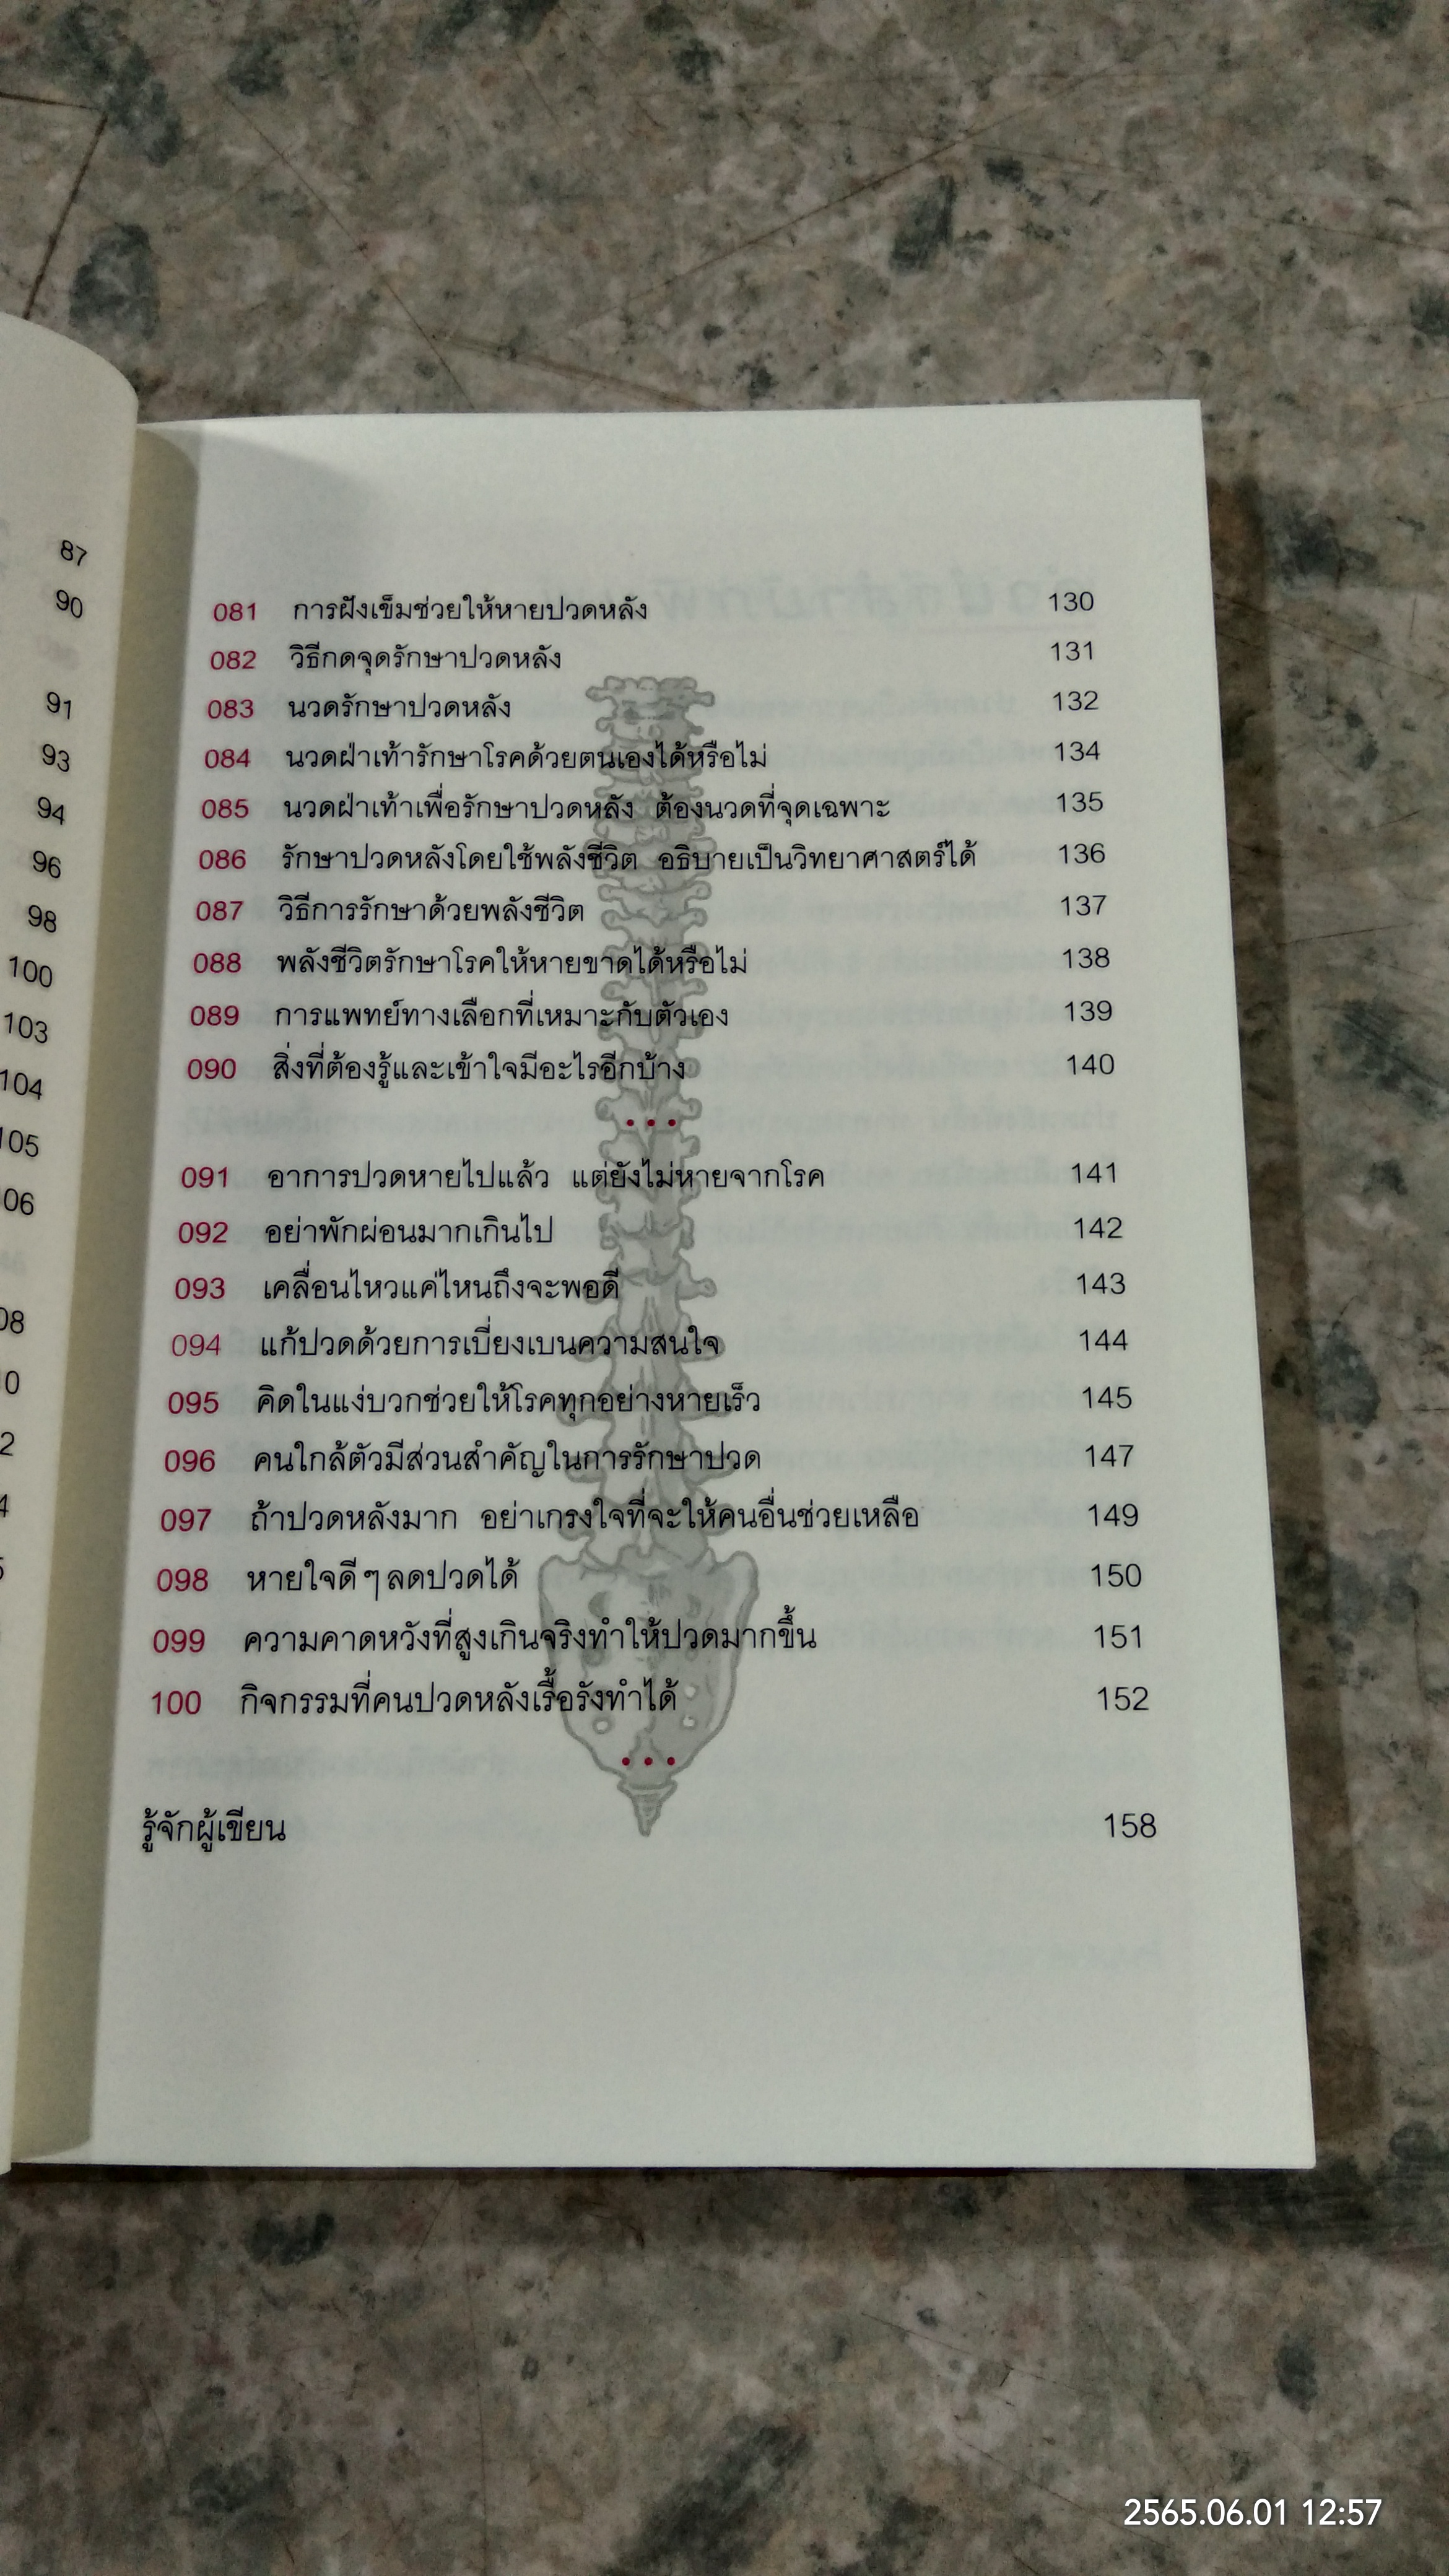 87
90
91
93
94
96
98
100
103
104
105
06
08
0
2
4
081 การฝังเข็มช่วยให้หายปวดหลัง 130
082 วิธีกดจุดรักษาปวดหลัง 131
083 นวดรักษาปวดหลัง 132
084 นวดฝ่าเท้ารักษาโรคด้วยตนเองได้หรือไม่ 134
085 นวดฝ่าเท้าเพื่อรักษาปวดหลัง ต้องนวดที่จุดเฉพาะ 135
086 รักษาปวดหลังโดยใช้พลังชีวิต อธิบายเป็นวิทยาศาสตร์ได้ 136
087 วิธีการรักษาด้วยพลังชีวิต 137
088 พลังชีวิตรักษาโรคให้หายขาดได้หรือไม่ 138
089 การแพทย์ทางเลือกที่เหมาะกับตัวเอง 139
090 สิ่งที่ต้องรู้และเข้าใจมีอะไรอีกบ้าง 140
• • •
091 อาการปวดหายไปแล้ว แต่ยังไม่หายจากโรค 141
092 อย่าพักผ่อนมากเกินไป 142
093 เคลื่อนไหวแค่ไหนถึงจะพอดี 143
094 แก้ปวดด้วยการเบี่ยงเบนความสนใจ 144
095 คิดในแง่บวกช่วยให้โรคทุกอย่างหายเร็ว 145
096 คนใกล้ตัวมีส่วนสำคัญในการรักษาปวด 147
097 ถ้าปวดหลังมาก อย่าเกรงใจที่จะให้คนอื่นช่วยเหลือ 149
098 หายใจดี ๆ ลดปวดได้ 150
099 ความคาดหวังที่สูงเกินจริงทำให้ปวดมากขึ้น 151
100 กิจกรรมที่คนปวดหลังเรื้อรังทำได้ 152
• • •
รู้จักผู้เขียน 158
2565.06.01 12:57